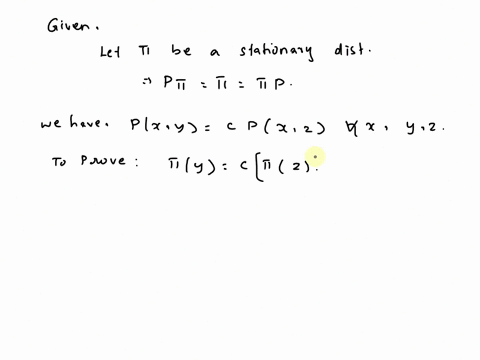 Given.
Let π be a stationary dist.
⇒ Pπ = π = πP.
we have. P(x,y) = c P(x,z) ∀ x, y,z.
To Prove: π(y) = c[π(z).